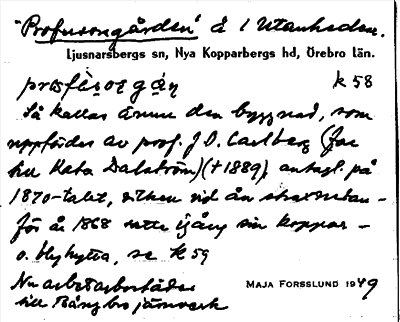 "Professorsgården" å 1 Utanheden.
Ljusnarsbergs sn, Nya Kopparbergs hd, Örebro län.
k 58
Så kallas ännu den byggnad, som
uppfördes av prof. J.O. Carlberg (far
till Kata Dalström) († 1889), antagl. på
1870-talet, vilken vid ån strax utan-
för år 1868 satte igång sin koppar-
o. blyhytta, se k 59
Nu arbetarbostäder
till Bångbro järnverk
MAJA FORSSLUND 1949